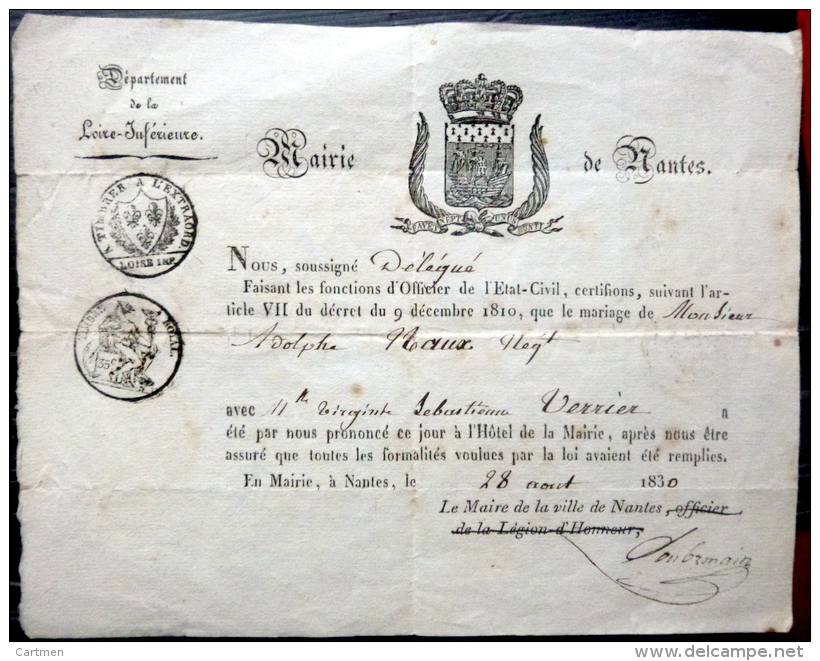 Département
de la
Loire-Inférieure.
Mairie de Nantes.
FAVET NEPTUNUS EUNTI
A TIMBRER A L'EXTRAORD.
LOIRE INF.
TIMBRE ROYAL.
35c
Nous, soussigné Délégué
Faisant les fonctions d'Officier de l'Etat-Civil, certifions, suivant l'ar-
ticle VII du décret du 9 décembre 1810, que le mariage de Monsieur
Adolphe Raux Negt
avec Mlle Virginie Sebastienne Verrier a
été par nous prononcé ce jour à l'Hôtel de la Mairie, après nous être
assuré que toutes les formalités voulues par la loi avaient été remplies.
En Mairie, à Nantes, le 28 aout 1830
Le Maire de la ville de Nantes, officier
de la Légion-d'Honneur,
© Cartmen
www.delcampe.net